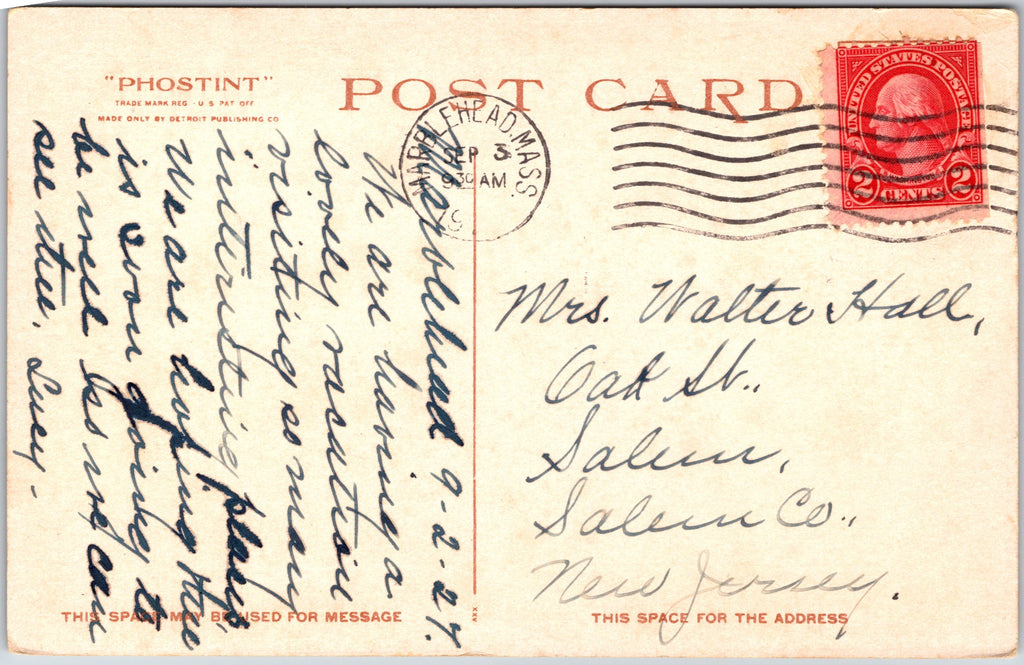 "PHOSTINT"
TRADE MARK REG · U S PAT OFF
MADE ONLY BY DETROIT PUBLISHING CO
POST CARD
MARBLEHEAD, MASS.
SEP 3
9 30 AM
19
UNITED STATES POSTAGE
WASHINGTON
2 CENTS 2
Marblehead 9-2-27.
We are having a
lovely vacation
visiting so many
interesting places
We are hoping
is soon going to
be well so we can
see
Lucy.
Mrs. Walter Hall,
Oak St.,
Salem,
Salem Co.,
New Jersey.
THIS SPACE MAY BE USED FOR MESSAGE
XX
THIS SPACE FOR THE ADDRESS